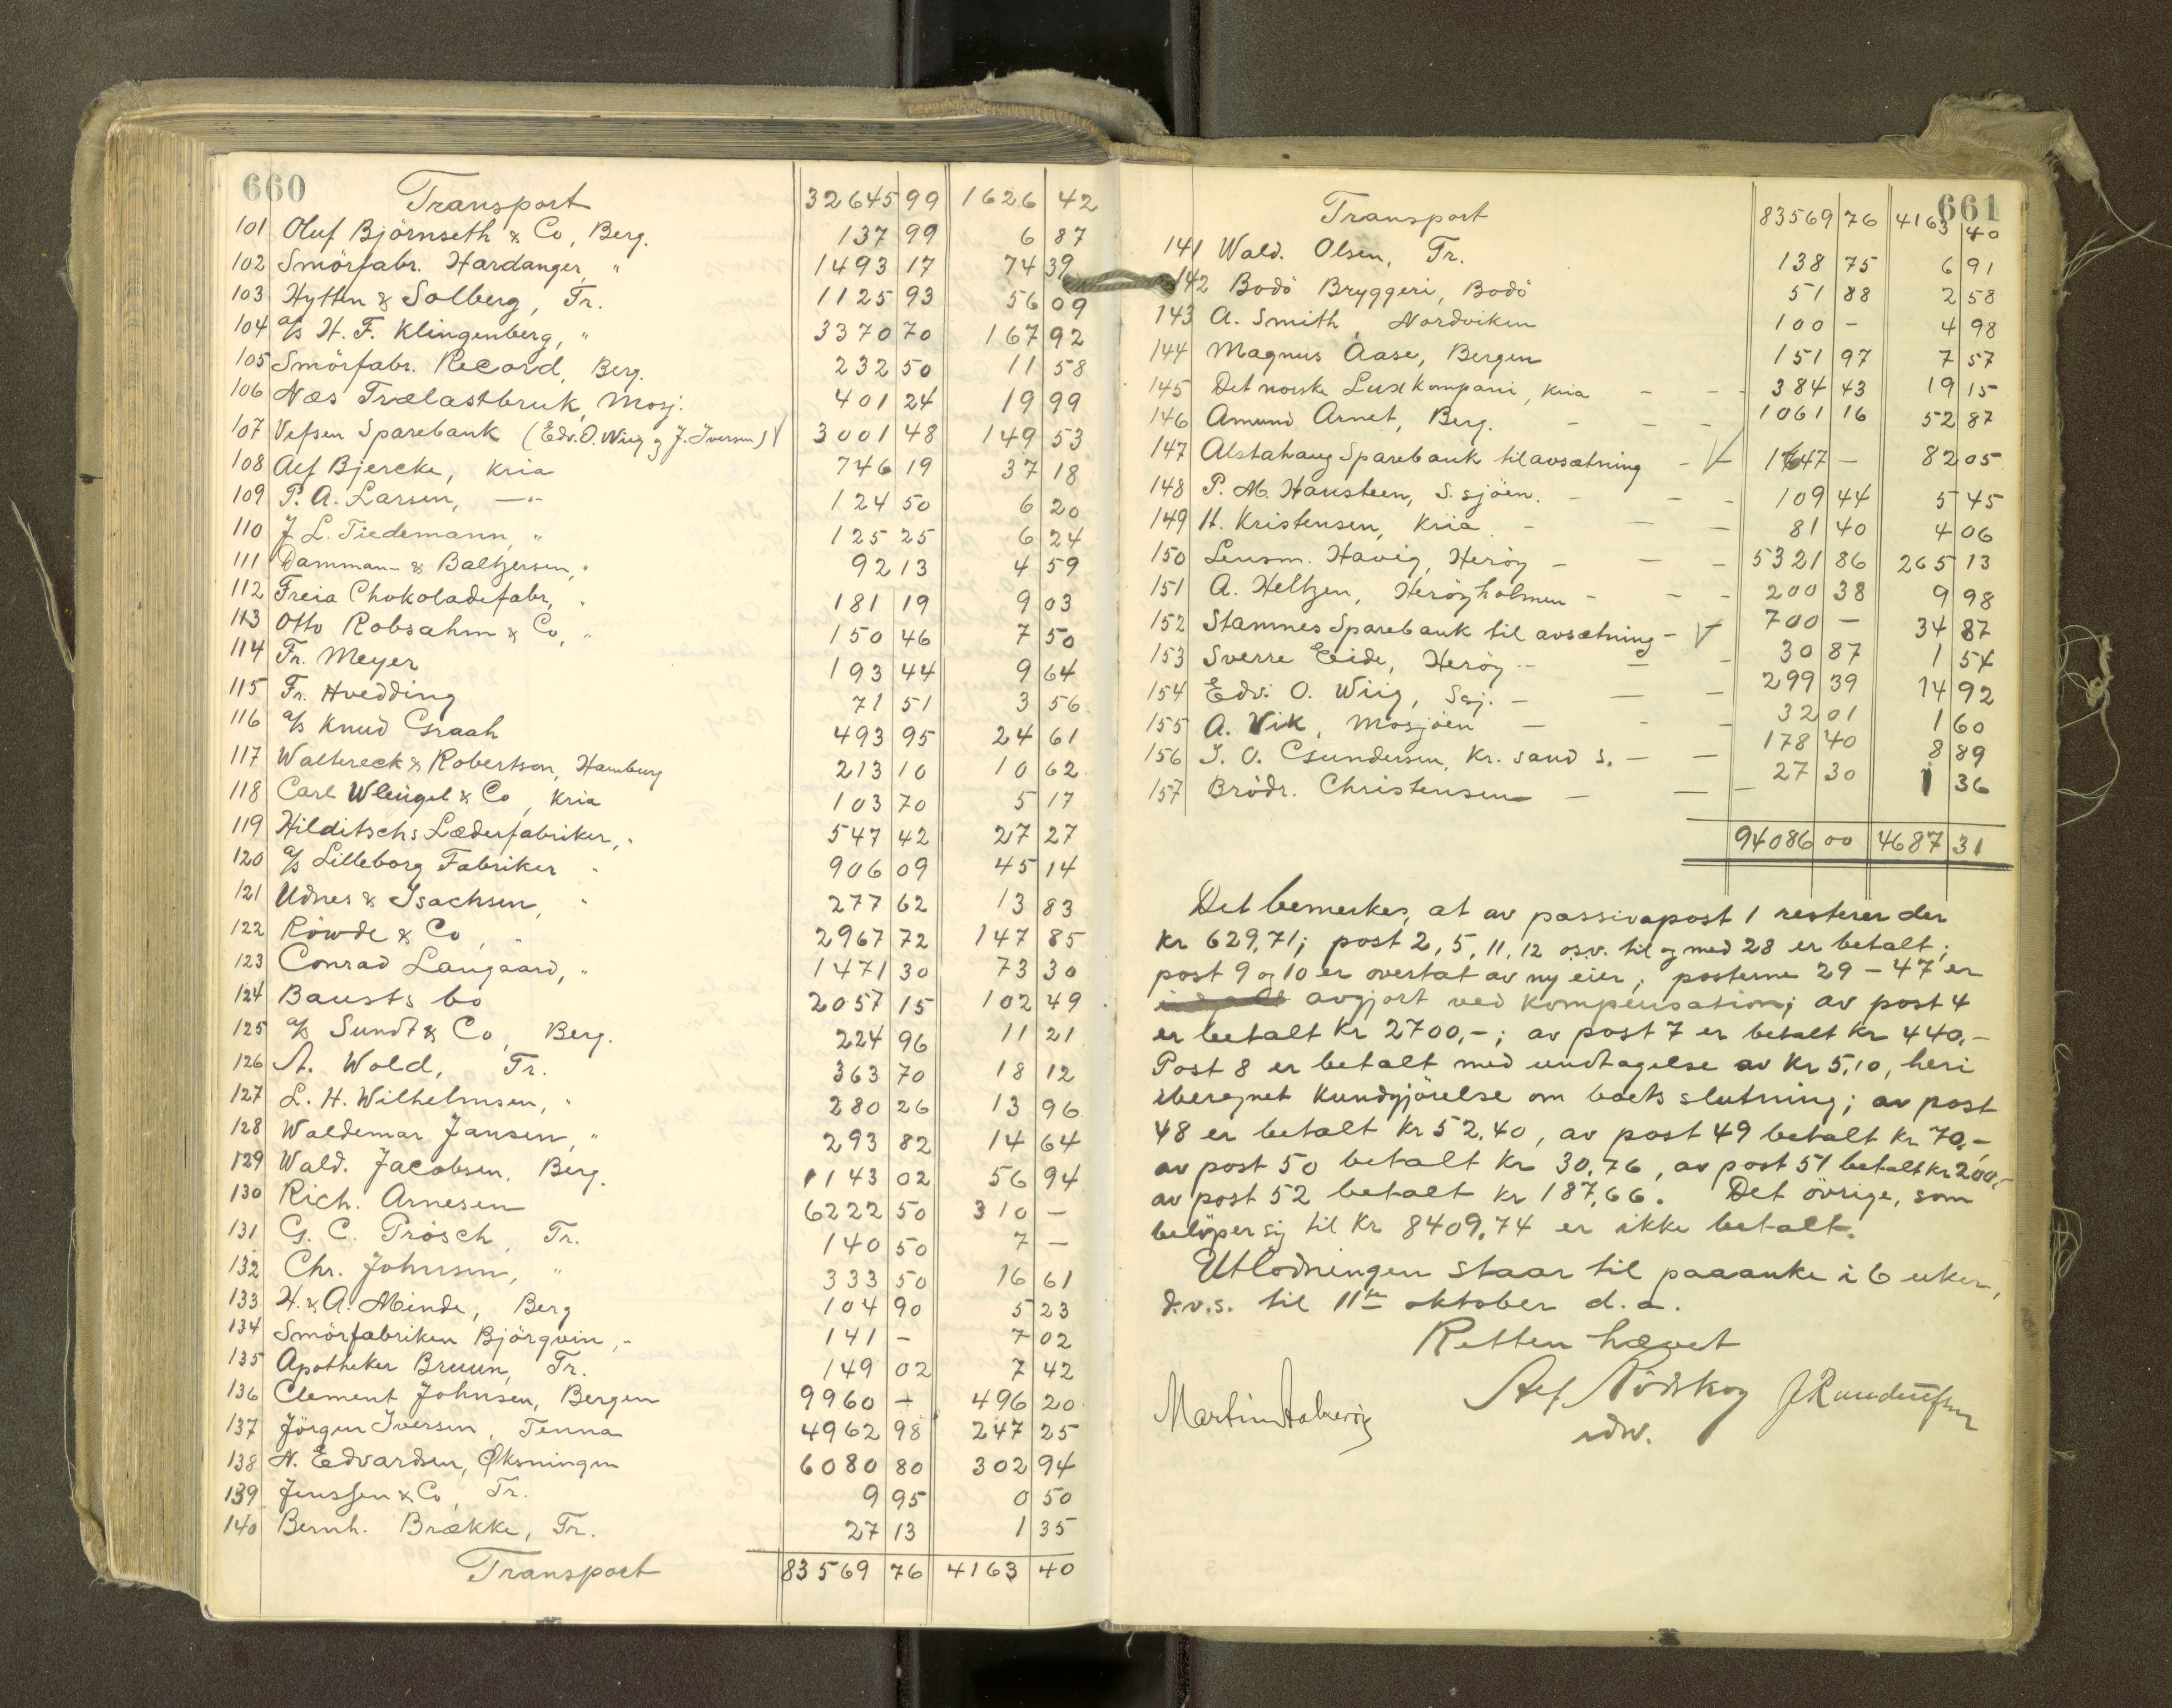 660
Transport 32645 99 1626 42
101 Oluf Björnseth & Co, Berg. 137 99 6 87
102 Smörfabr. Hardanger, " 1493 17 74 39
103 Hytten & Solberg, Tr. 1125 93 56 09
104 a/s H. F. Klingenberg, " 3370 70 167 92
105 Smörfabr. Record, Berg. 232 50 11 58
106 Næs Trælastbruk, Mosj. 401 24 19 99
107 Vefsen Sparebank (Edv. O. Wiig og J. Iversen) V 3001 48 149 53
108 Alf Bjercke, Kria 746 19 37 18
109 P. A. Larsen, —"— 124 50 6 20
110 J. L. Tiedemann, " 125 25 6 24
111 Damman & Baltzersen, " 92 13 4 59
112 Freia Chokoladefabr, " 181 19 9 03
113 Otto Robsahm & Co, " 150 46 7 50
114 Fr. Meyer 193 44 9 64
115 Fr. Hvedding 71 51 3 56
116 a/s Knud Graah 493 95 24 61
117 Waltereck & Robertson, Hamburg 213 10 10 62
118 Carl Wleügel & Co, Kria 103 70 5 17
119 Hilditschs Læderfabriker, " 547 42 27 27
120 a/s Lilleborg Fabriker " 906 09 45 14
121 Udnes & Isachsen, " 277 62 13 83
122 Röwde & Co, " 2967 72 147 85
123 Conrad Langaard, " 1471 30 73 30
124 Bausts bo 2057 15 102 49
125 a/s Sundt & Co, Berg. 224 96 11 21
126 A. Wold, Tr. 363 70 18 12
127 L. H. Wilhelmsen, " 280 26 13 96
128 Waldemar Jansen, " 293 82 14 64
129 Wald. Jacobsen, Berg. 1143 02 56 94
130 Rich. Arnesen 6222 50 310 —
131 G. C. Prösch, Tr. 140 50 7 —
132 Chr. Johnsen, " 333 50 16 61
133 H. & A. Minde, Berg 104 90 5 23
134 Smörfabriken Björgvin, " 141 - 7 02
135 Apotheker Bruun, Tr. 149 02 7 42
136 Clement Johnsen, Bergen 9960 - 496 20
137 Jörgen Iversen, Tenna 4962 98 247 25
138 N. Edvardsen, Øksningen 6080 80 302 94
139 Jenssen & Co, Tr. 9 95 0 50
140 Bernh. Brække, Tr. 27 13 1 35
Transport 83569 76 4163 40
661
Transport 83569 76 4163 40
141 Wald. Olsen, Tr. 138 75 6 91
142 Bodö Bryggeri, Bodö 51 88 2 58
143 A. Smith, Nordviken 100 - 4 98
144 Magnus Aase, Bergen 151 97 7 57
145 Det norske Luxkompani, Kria - - 384 43 19 15
146 Amund Arnet, Berg. - - - 1061 16 52 87
147 Alstahaug Sparebank til avsætning - V 1647 — 82 05
148 P. M. Hansteen, S. sjöen. - - - 109 44 5 45
149 H. Kristensen, Kria - - - 81 40 4 06
150 Lensm. Havig, Heröy - - - 5321 86 265 13
151 A. Heltzen, Heröyholmen - - - 200 38 9 98
152 Stamnes Sparebank til avsætning - V 700 — 34 87
153 Sverre Eide, Heröy - - - 30 87 1 54
154 Edv. O. Wiig, Ssj. - - - 299 39 14 92
155 A. Vik, Mosjöen - - - 32 01 1 60
156 J. O. Gundersen, Kr. sand S. - - 178 40 8 89
157 Brödr. Christensen - - - 27 30 1 36
94086 00 4687 31
Det bemerkes, at av passivapost 1 resterer der
kr 629,71; post 2, 5, 11, 12 o.s.v. til og med 28 er betalt;
post 9 og 10 er overtat av ny eier; posterne 29 - 47 er
avgjort ved kompensation; av post 4
er betalt kr 2700,-; av post 7 er betalt kr 440,-
Post 8 er betalt med undtagelse av kr 5,10, heri
iberegnet kundgjörelse om boets slutning; av post
48 er betalt kr 52.40, av post 49 betalt kr 70,-
av post 50 betalt kr 30,76, av post 51 betalt kr 200,-
av post 52 betalt kr 187,66. Det övrige, som
belöper sig til kr 8409,74 er ikke betalt.
Utlodningen staar til paaanke i 6 uker,
d.v.s. til 11te oktober d. a.
Retten hævet
Alf Rödskog